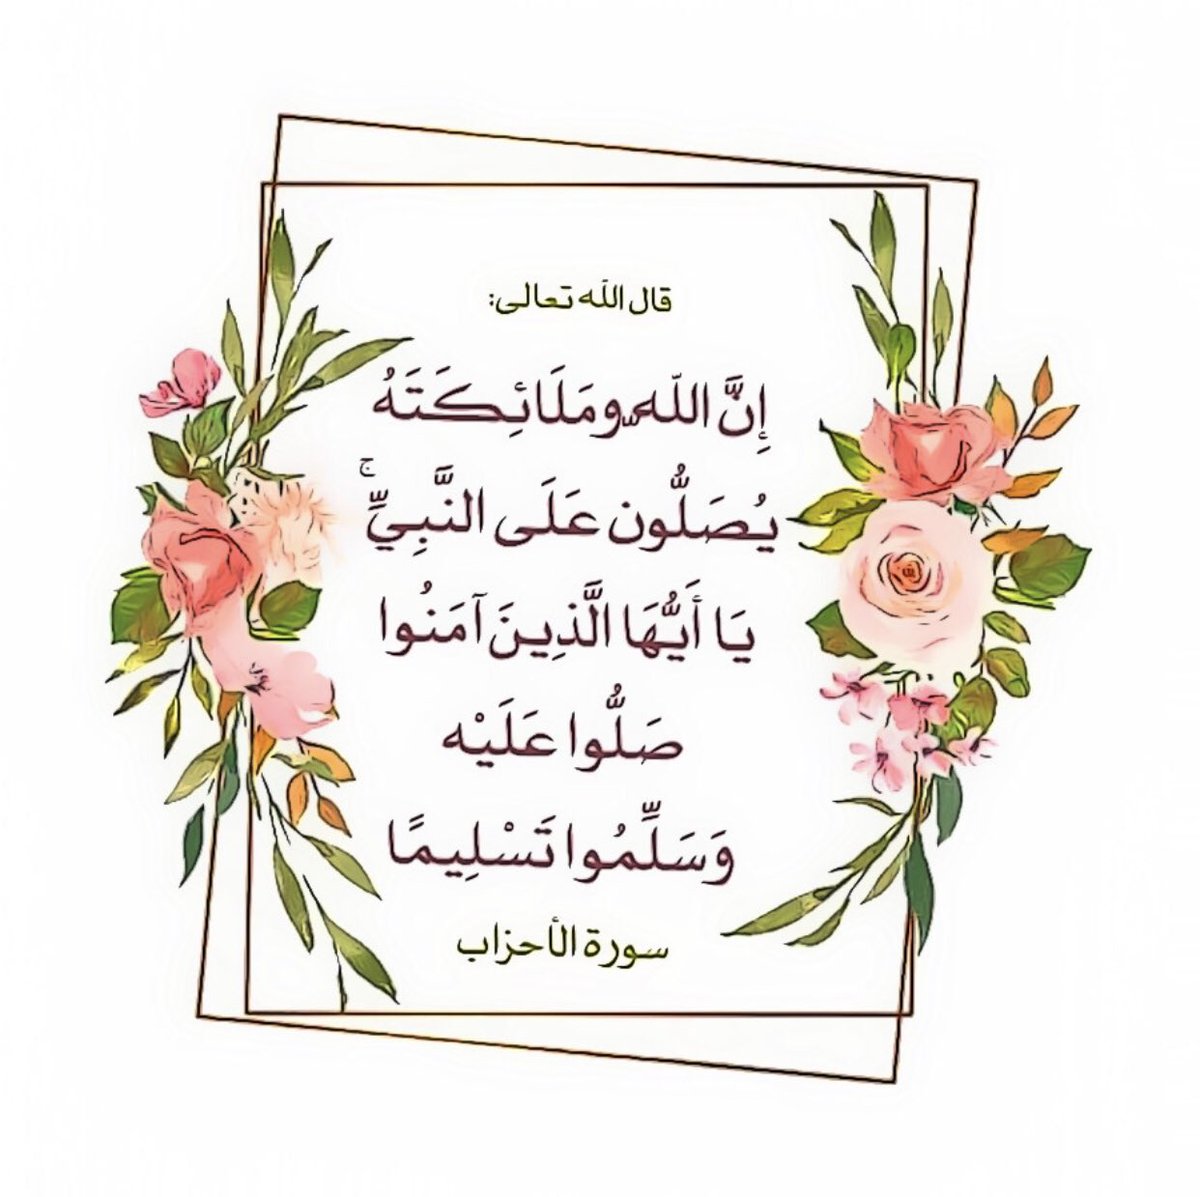 قال الله تعالى:
إِنَّ اللّه ومَلَائِكَتَهُ
يُصَلُّون عَلَى النَّبِيِّ ۚ
يَا أَيُّهَا الَّذِينَ آمَنُوا
صَلُّوا عَلَيْه
وَسَلِّمُوا تَسْلِيمًا
سورة الأحزاب